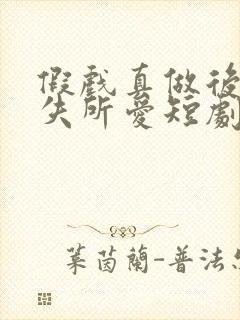 假戲真做後
失所愛短劇
萊茵蘭-普法